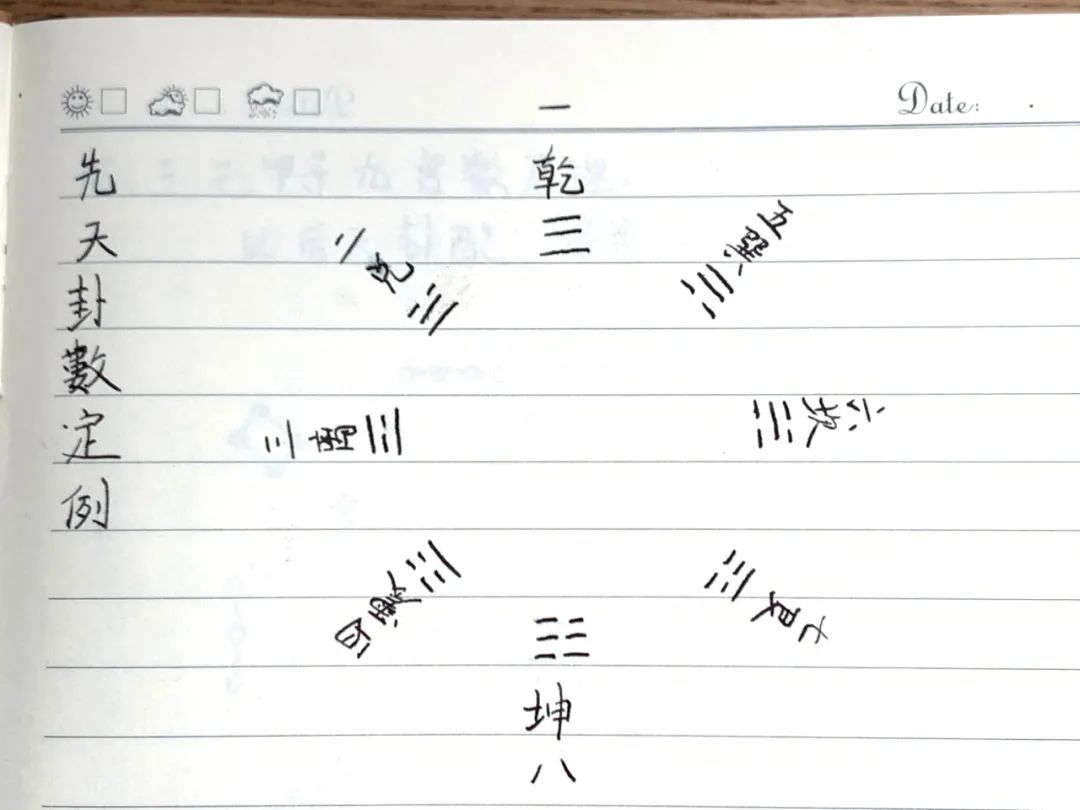 Date:
先天封數定例
一
乾
二兌
五巽
三離
六坎
四震
七艮
坤
八